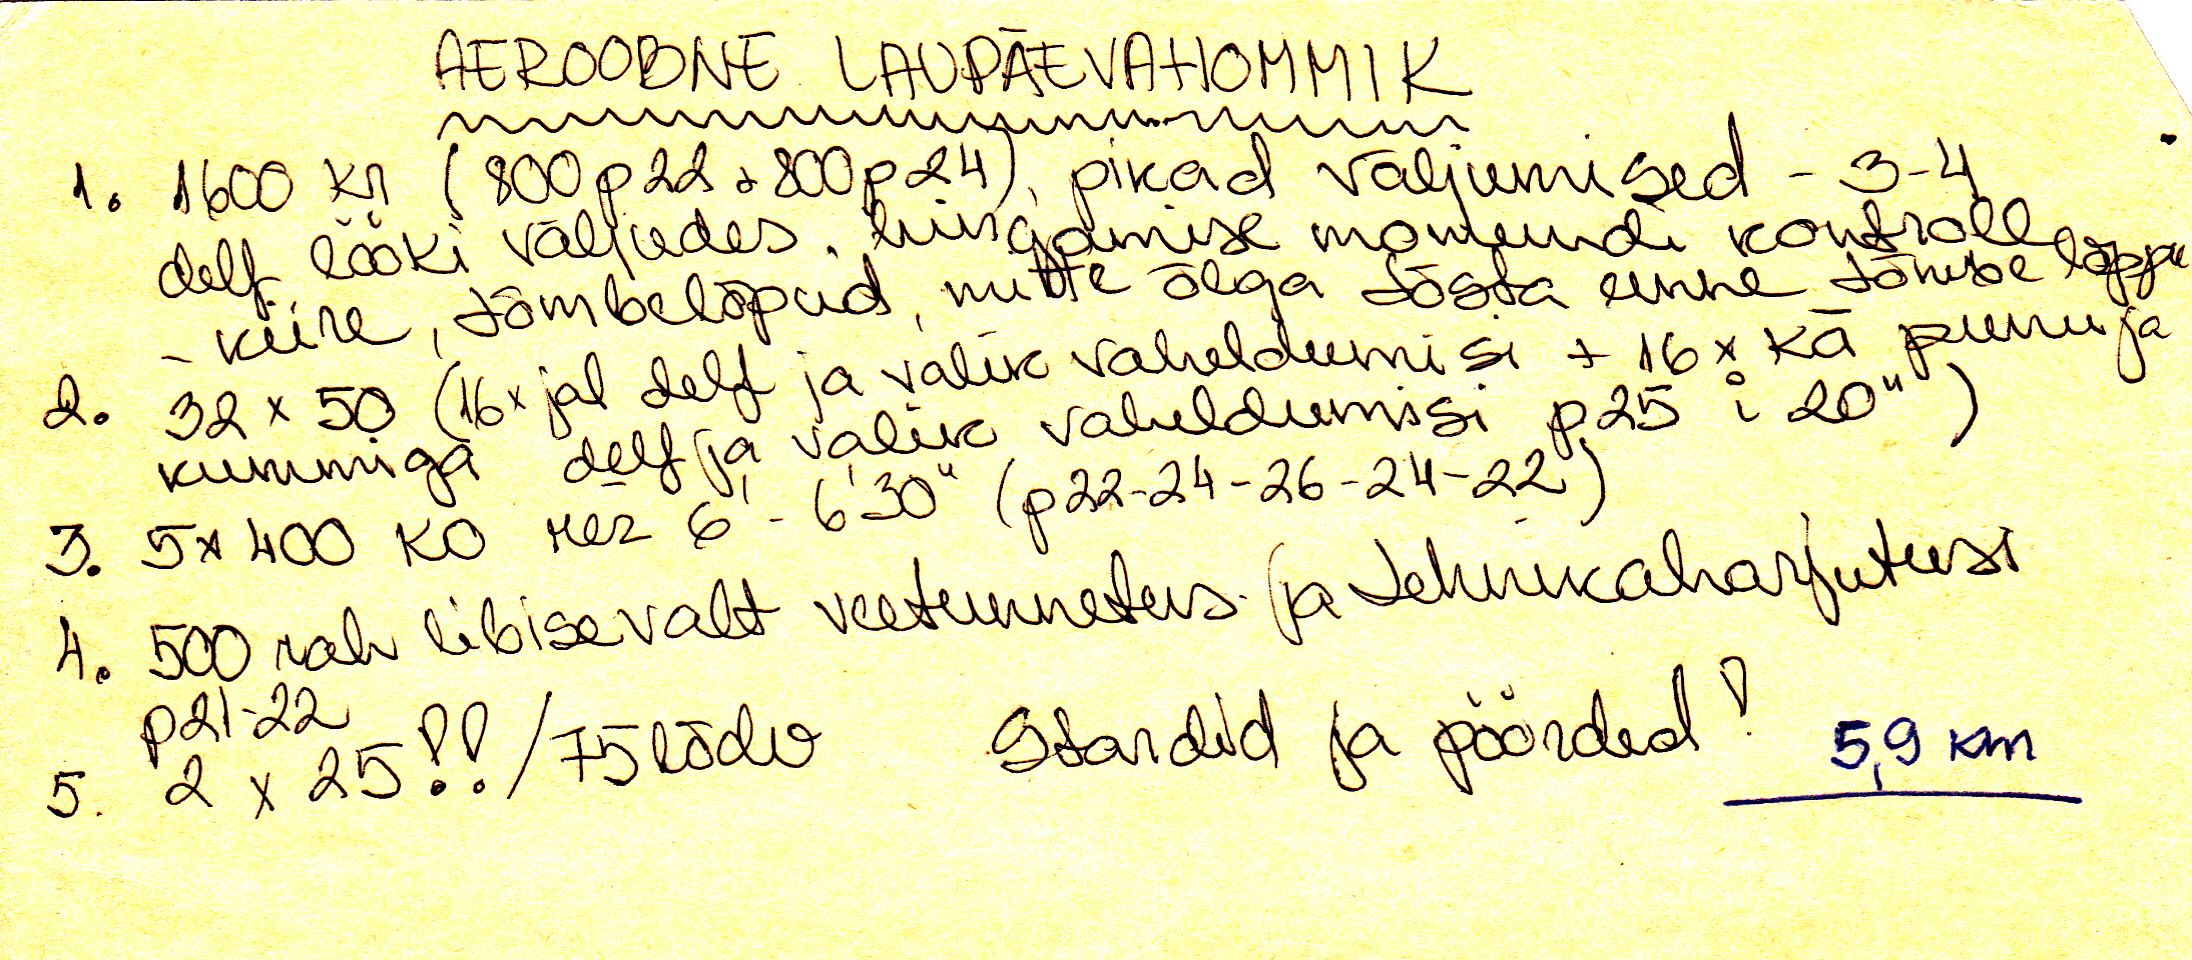 AEROOBNE LAUPÄEVAHOMMIK
1. 1600 kr (800 p22 + 800 p24), pikad väljumised - 3-4
delf. lööki väljudes, hingamise momendi kontroll
- kiire, tõmbelõpud, mitte õlga tõsta enne tõmbe lõppu
2. 32 x 50 (16x jal delf ja valik vaheldumisi + 16 x kä punuja
kummiga delf ja valik vaheldumisi p25 i 20")
3. 5x 400 KO rez 6' - 6'30" (p22-24-26-24-22)
4. 500 rah libisevalt veetunnetus- ja tehnikaharjutusi
p21-22
5. 2 x 25!!/75 lõdv Stardid ja pöörded! 5,9 km